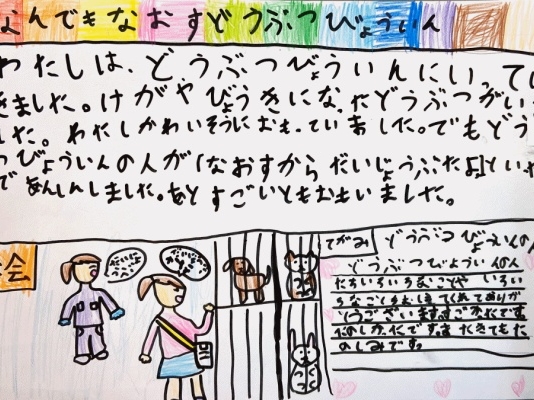 なんでもなおすどうぶつびょういん
わたしは、どうぶつびょういんにいってい
きました。けがやびょうきになったどうぶつがい
した。わたしかわいそうにおもっていました。でもどう
つびょういんの人が「なおすからだいじょうぶだよ」といっ
であんしんしました。あとすごいともおもいました。
絵
てがみ
どうぶつびょういんの人
どうぶつびょういんの人
たちいろいろなことや いろい
ろなこと
とうございます。すごかったです
たのしかったです。またきてもた
のしみです。